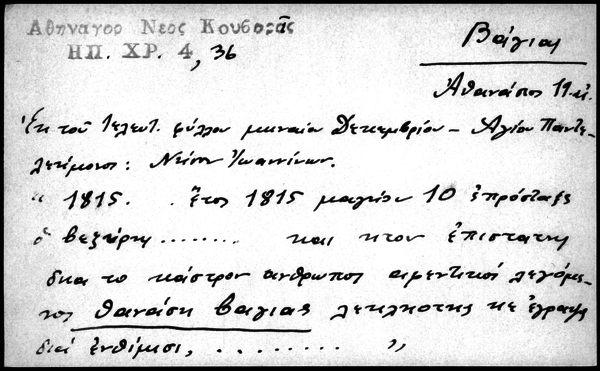 Αθηναγορ Νεος Κουβαρᾶς
ΗΠ. ΧΡ. 4, 36
Βάγιας
Ἀθανάσιος
Ἐκ τοῦ τελευτ. φύλλου μηναίου Δεκεμβρίου – Ἁγίου Παντε-
λεήμονος: Νήσου Ἰωαννίνων.
" 1815. . ἔτος 1815 μαγιου 10 ἐπρόσταξε
ὁ βεζύρης ........ και ητον ἐπιστατης
δια το κάστρον ανθρωπος αφεντικος λεγόμε-
νος θανάση βαγιας λεκλκοτης κε ἔγραψα
διά ἐνθίμισι, ........ "